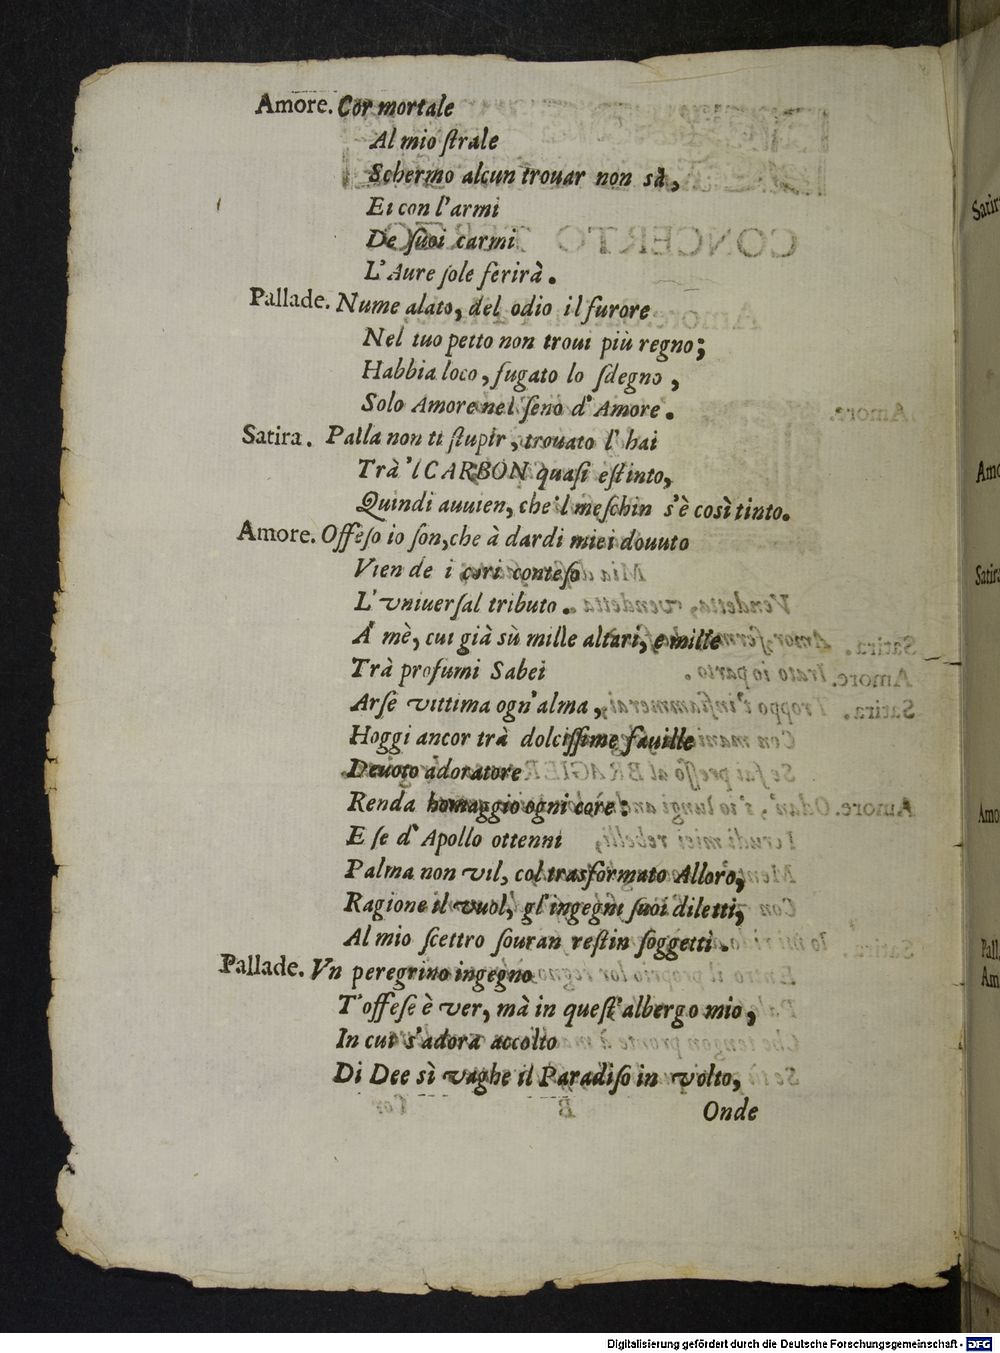 Amore. Cor mortale
Al mio ſtrale
Schermo alcun trouar non sà,
Et con l'armi
De ſuoi carmi
L'Aure ſole ferirà.
Pallade. Nume alato, del odio il furore
Nel tuo petto non troui più regno;
Habbia loco, fugato lo ſdegno,
Solo Amore nel ſeno d'Amore.
Satira. Palla non ti ſtupir, trouato l'hai
Trà 'l CARBON quaſi eſtinto,
Quindi auuien, che'l meſchin s'è così tinto.
Amore. Offeſo io ſon, che à dardi miei douuto
Vien de i cori conteſo
L'vniuerſal tributo.
A mè, cui già sù mille altari, e mille
Trà profumi Sabei
Arſe vittima ogn'alma,
Hoggi ancor trà dolciſſime fauille
Deuoto adoratore
Renda homaggio ogni core:
E ſe d'Apollo ottenni
Palma non vil, col trasformato Alloro,
Ragione il vuol, gl'ingegni ſuoi diletti,
Al mio ſcettro ſouran reſtin ſoggetti.
Pallade. Vn peregrino ingegno
T'offeſe è ver, mà in queſt'albergo mio,
In cui s'adora accolto
Di Dee sì vaghe il Paradiſo in volto,
Onde
Satir
Amo
Satira
Amo
Pall.
Am
Digitalisierung gefördert durch die Deutsche Forschungsgemeinschaft - DFG